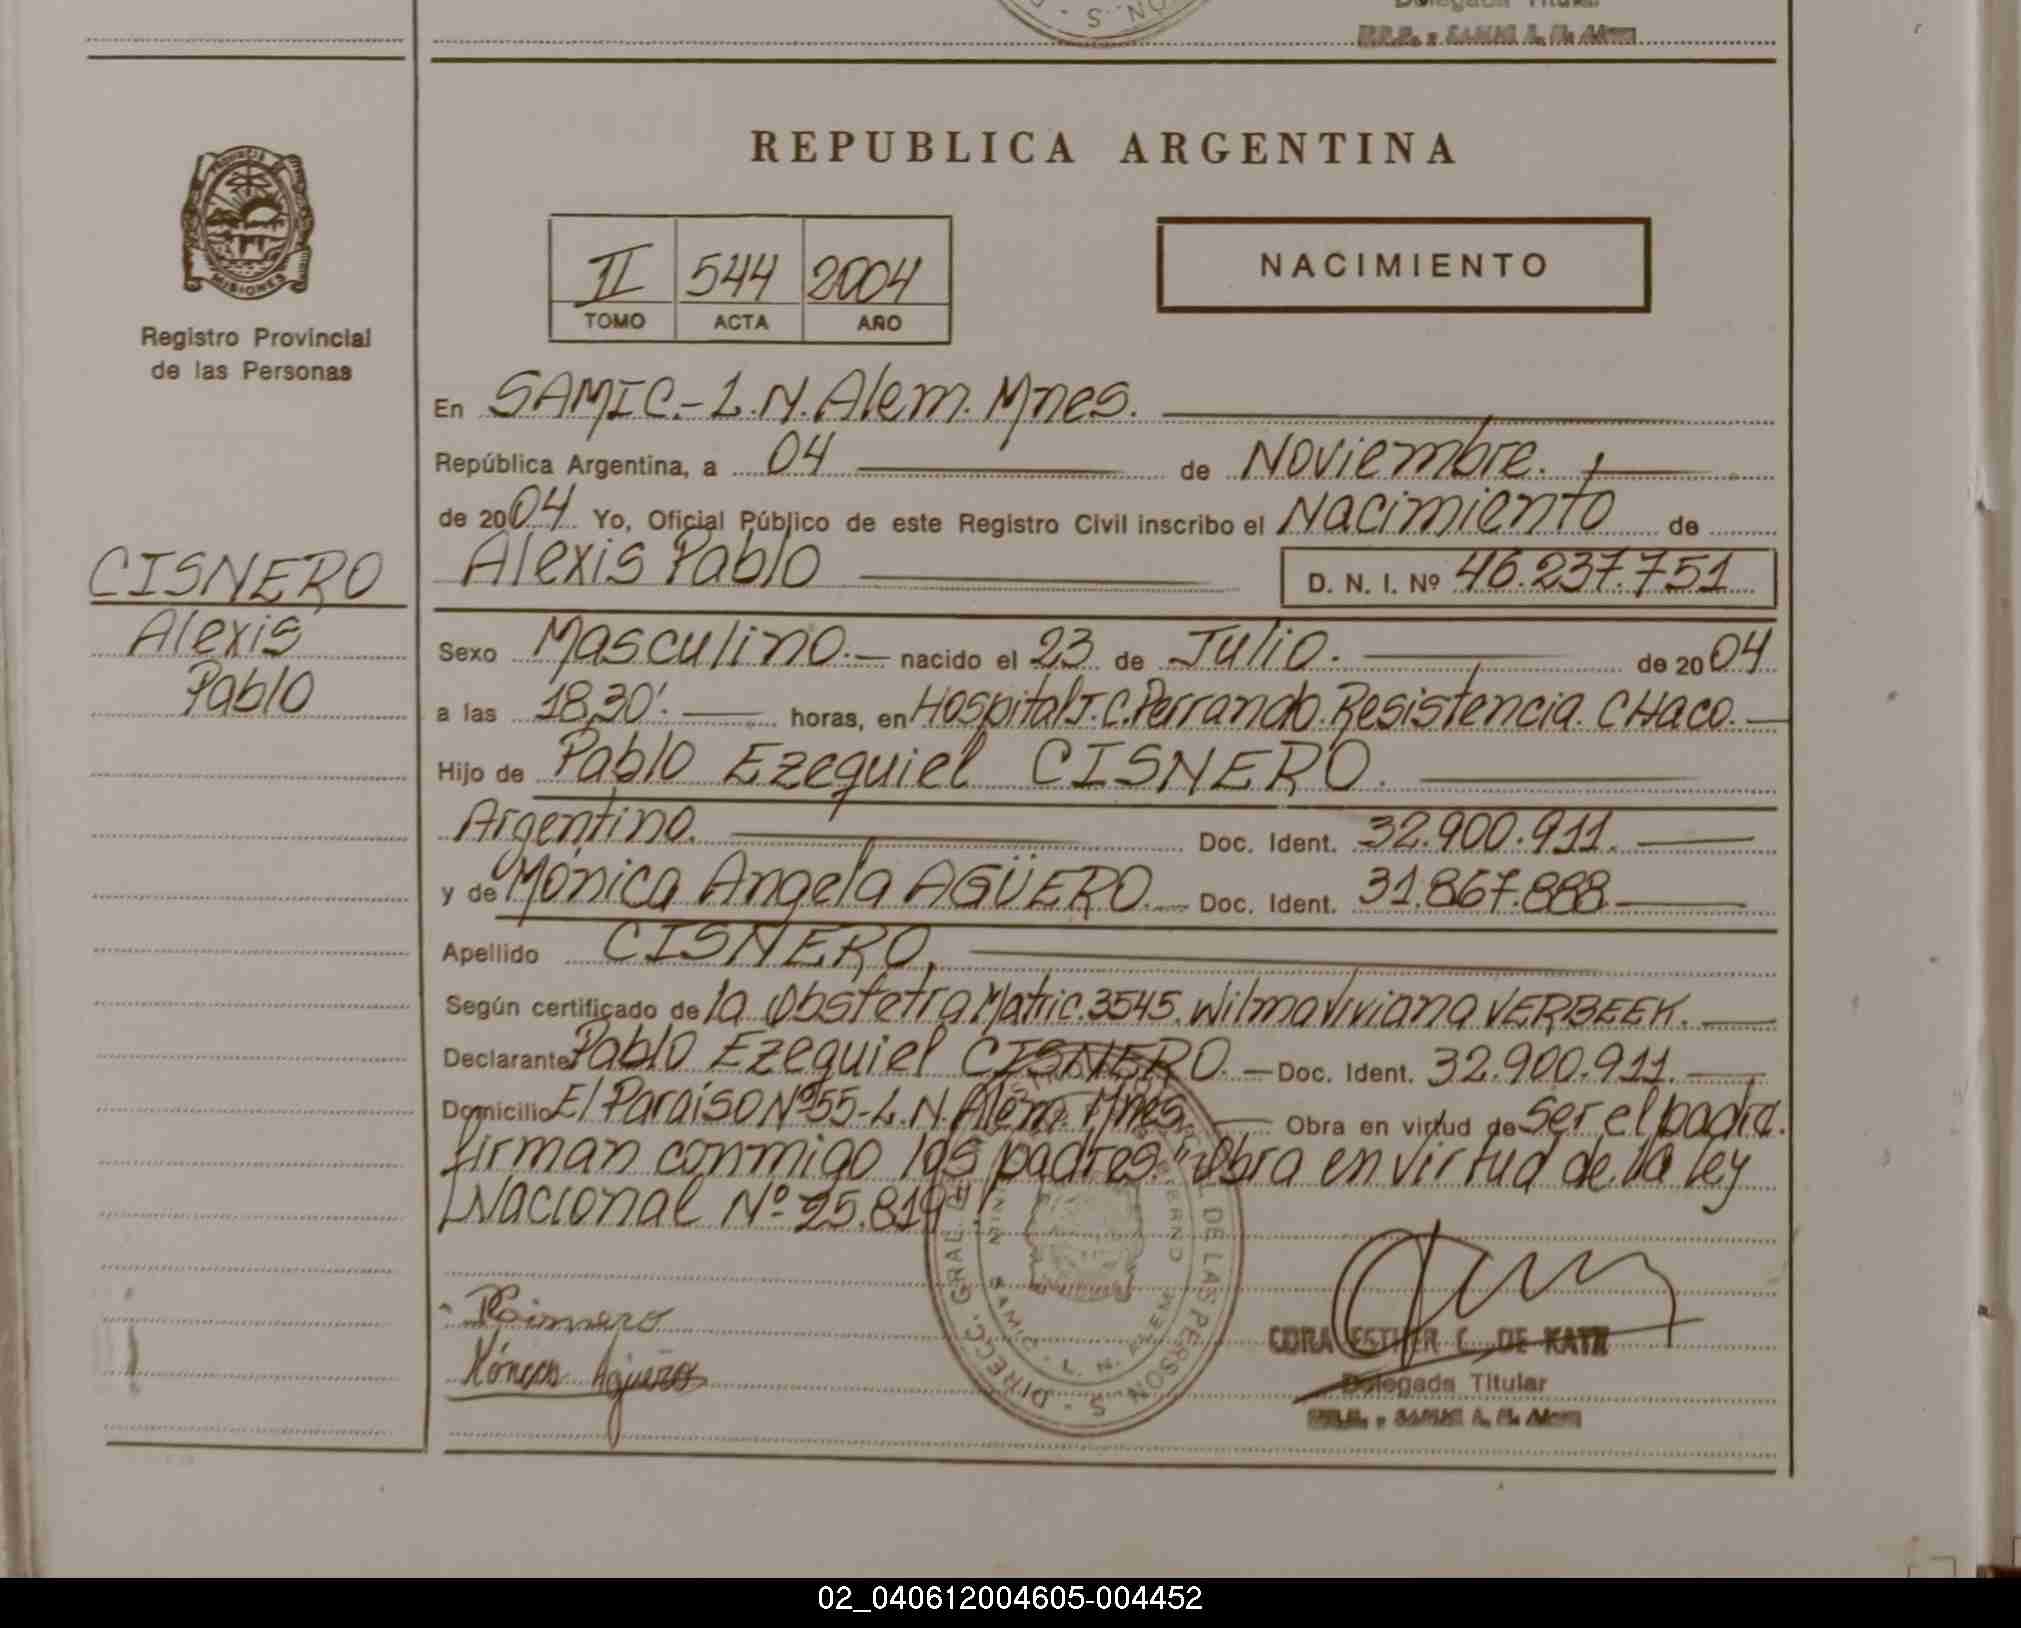 Delegada Titular
REPUBLICA ARGENTINA
PROVINCIA DE
MISIONES
Registro Provincial
de las Personas
II 544 2004
TOMO ACTA AÑO
NACIMIENTO
En SAMIC.- L.N. Alem. Mnes.
República Argentina, a 04 de Noviembre.
de 2004 Yo, Oficial Público de este Registro Civil inscribo el Nacimiento de
Alexis Pablo D. N. I. Nº 46.237.751
CISNERO
Alexis
Pablo
Sexo Masculino.- nacido el 23 de Julio. de 2004
a las 18,30'. horas, en Hospital J.C. Perrando. Resistencia. CHaco.
Hijo de Pablo Ezequiel CISNERO.
Argentino. Doc. Ident. 32.900.911.
y de Mónica Angela AGÜERO. Doc. Ident. 31.867.888.
Apellido CISNERO.
Según certificado de la Obstetra Matric. 3545. Wilma Viviana VERBEEK.
Declarante Pablo Ezequiel CISNERO.- Doc. Ident. 32.900.911.
Domicilio El Paraíso Nº 55- L.N. Alem. Mnes. Obra en virtud de ser el padre.
firman conmigo los padres. "Obra en virtud de la ley
Nacional Nº 25.819"
DIRECC. GRAL. DE LAS PERSON.S
SAMIC - L. N. ALEM
Mónica Agüero
CORA ESTHER C. DE KATZ
Delegada Titular
02_040612004605-004452